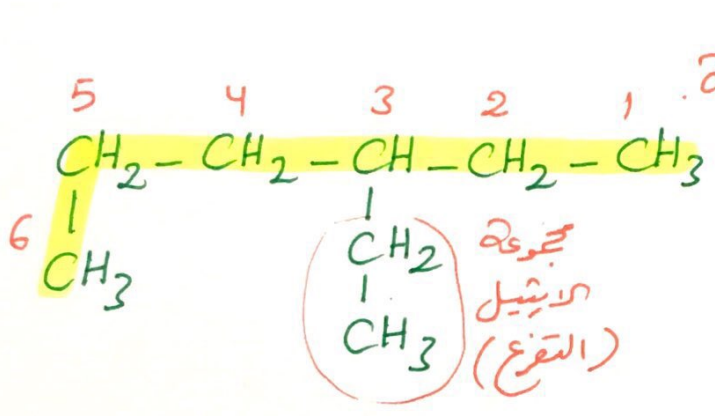 5 4 3 2 1
CH₂ – CH₂ – CH – CH₂ – CH₃
6 | |
CH₃ CH₂ مجموعة
| الايثيل
CH₃ (التفرع)